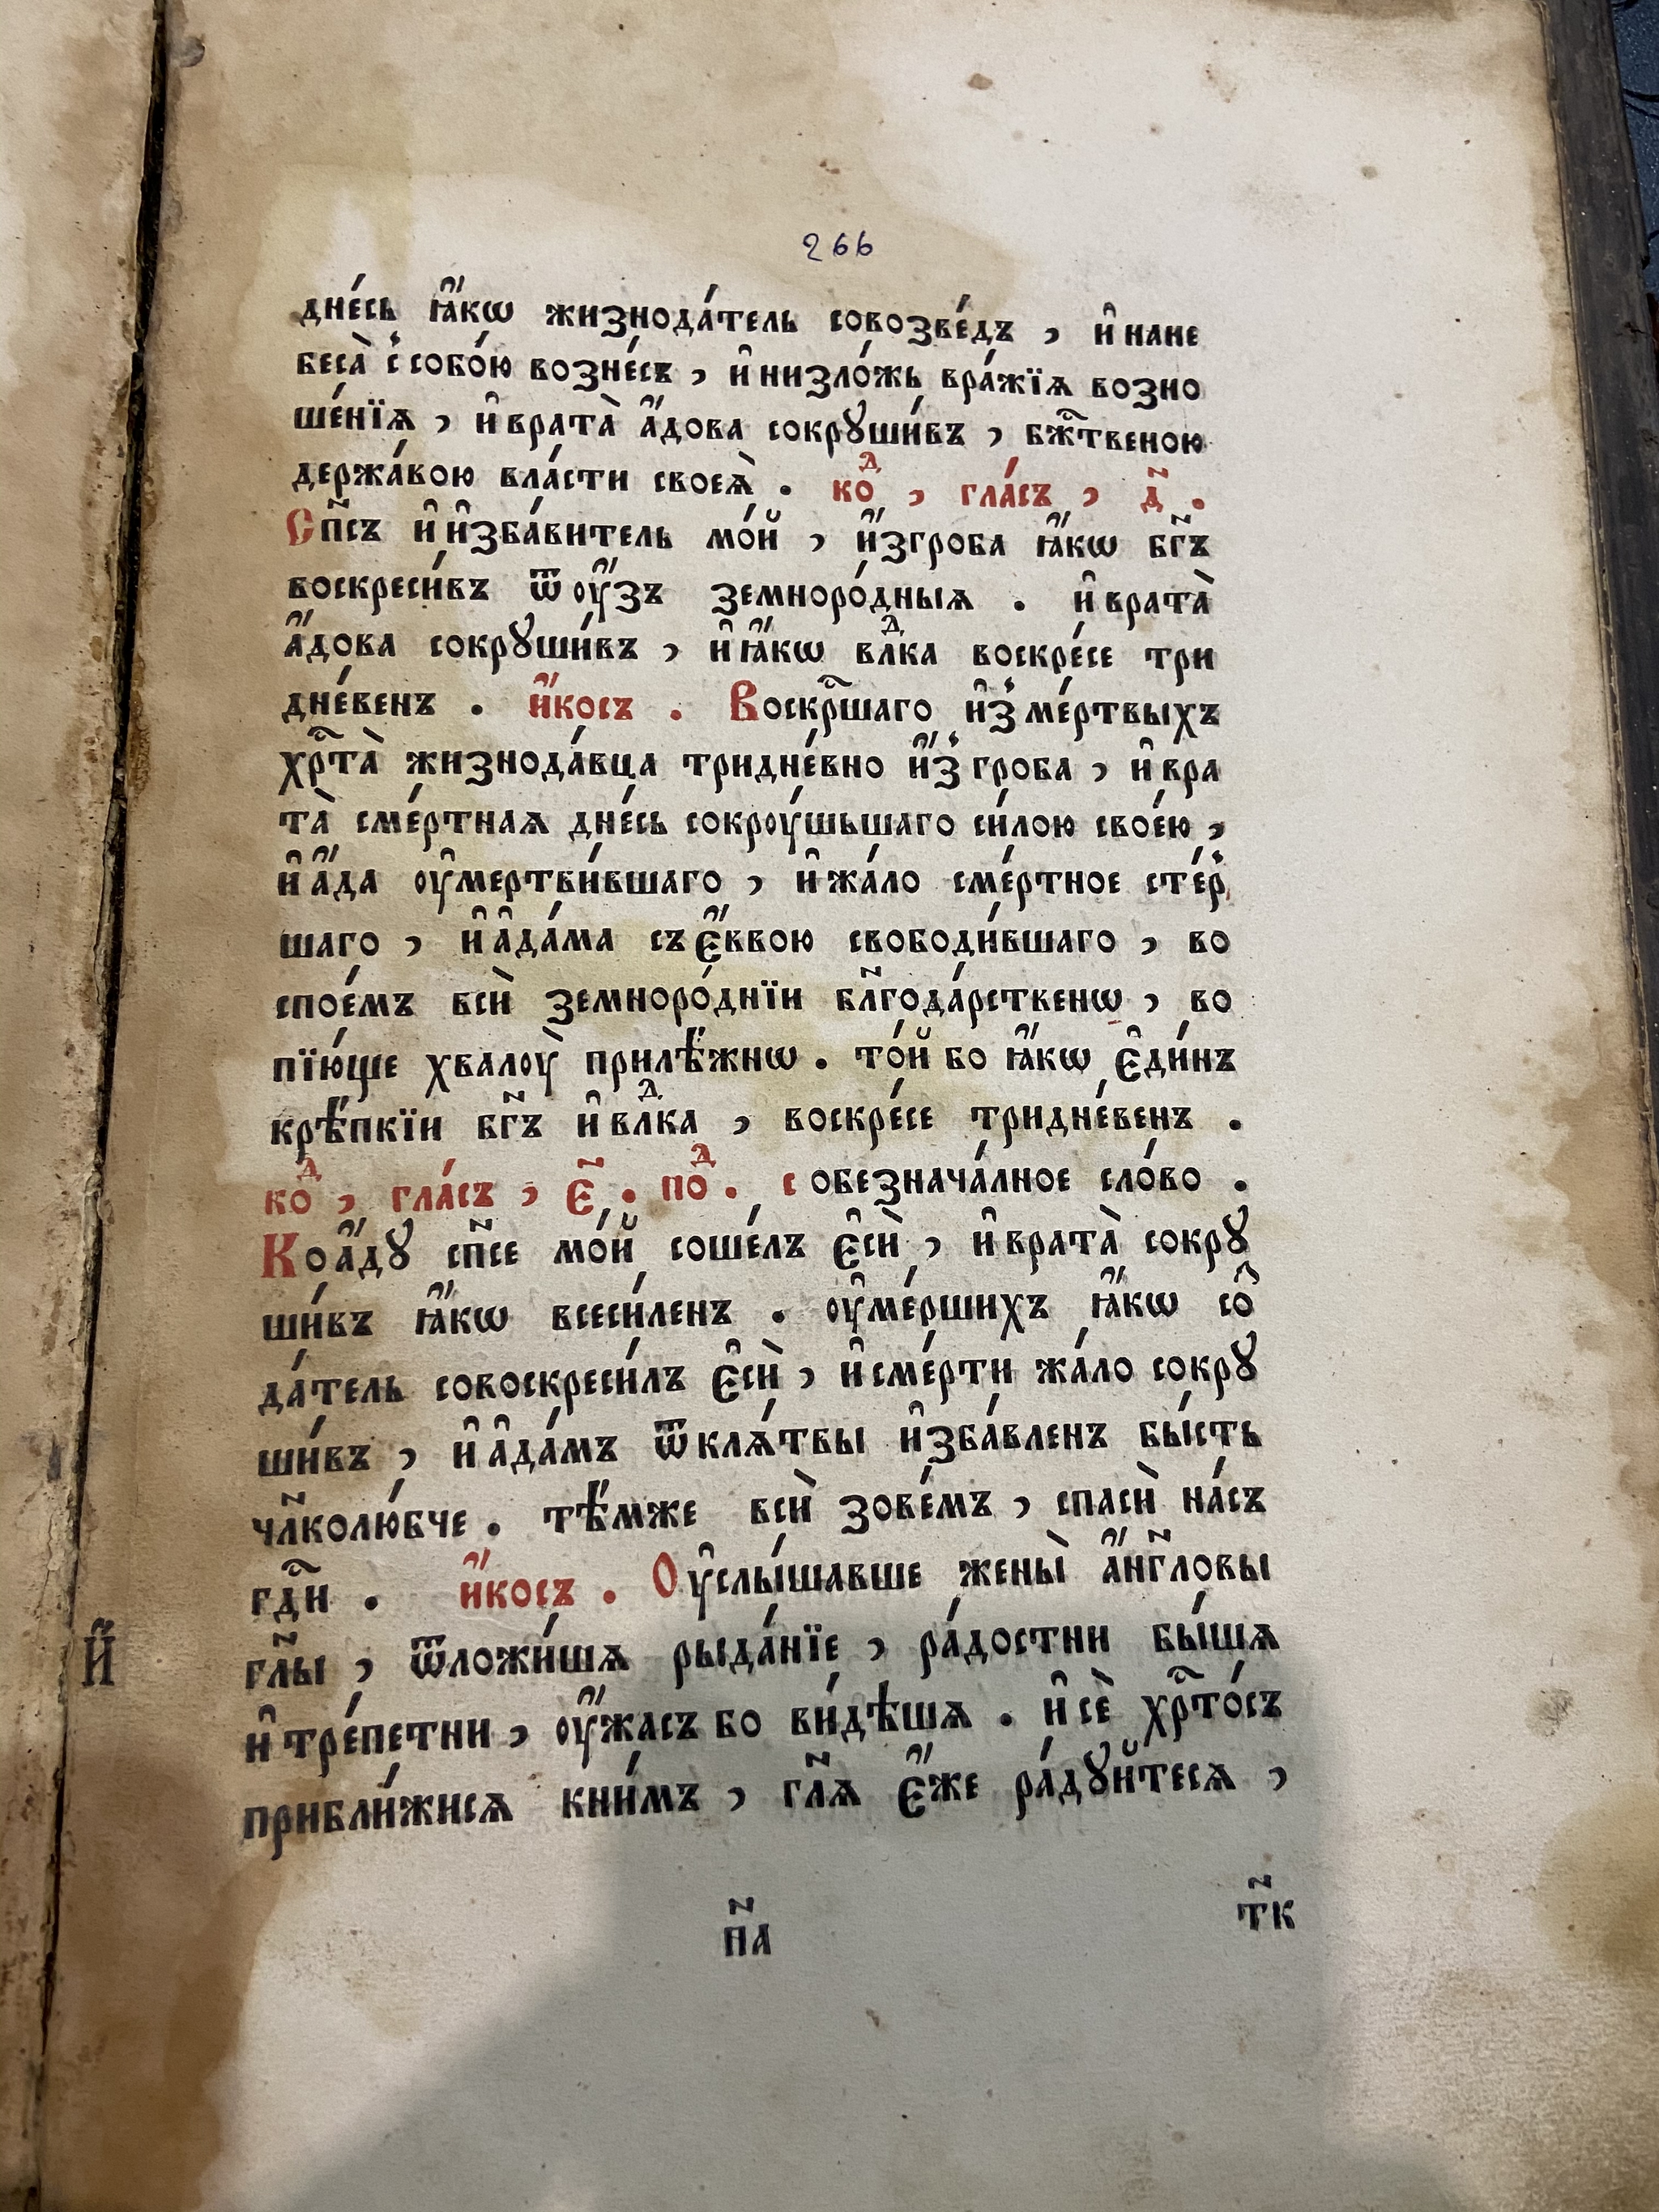 266
дне́сь ꙗ҆́кѡ жизнода́тель совозве́дъ , и҆ нане
беса̀ с̾собо́ю вознє́съ , и҆ низло́жь вра́жїѧ возно
ше́нїѧ , и҆ врата̀ а҆́дова сокрꙋши́въ , бж҃твеною
держа́вою вла́сти своеѧ̀ . коⷣ , гла́съ , д҃ .
Сп҃съ и҆ и҆зба́витель мо́й , и҆́згроба ꙗ҆́кѡ бг҃ъ
воскреси́въ ѿ оу҆́зъ земноро́дныѧ . и҆ врата̀
а҆́дова сокрꙋши́въ , и҆ ꙗ҆́кѡ влⷣка воскре́се три
дне́венъ . и҆́косъ . Воскр҃шаго и҆з̾ ме́ртвыхъ
хрⷭ҇та̀ жизнода́вца тридне́вно и҆́з̾ гроба , и҆ вра
та̀ сме́ртнаѧ дне́сь сокроу́шьшаго си́лою свое́ю ,
и҆ а҆́да оу҆мертви́вшаго , и҆ жа́ло сме́ртное сте́р̾
шаго , и҆ а҆да́ма съ є҆́ввою свободи́вшаго , во
спое́мъ всѝ земноро́днїи бл҃года́рственѡ , во
пїю́ще хвалоу̀ прилѣ́жнѡ . то́й бо ꙗ҆́кѡ є҆ди́нъ
крѣ́пкїи бг҃ъ и҆ влⷣка , воскре́се тридне́венъ .
коⷣ , гла́съ , є҃ . поⷣ . собезнача́лное сло́во .
Коа҆́дꙋ сп҃се мо́й соше́лъ є҆сѝ , и҆ врата̀ сокрꙋ
ши́въ ꙗ҆́кѡ всеси́ленъ . оу҆ме́ршихъ ꙗ҆́кѡ соⷥ
да́тель совоскреси́лъ є҆сѝ , и҆ сме́рти жа́ло сокрꙋ
ши́въ , и҆ а҆да́мъ ѿ клѧ́твы и҆зба́вленъ бы́сть
чл҃колю́бче . тѣ́мже всѝ зове́мъ , спасѝ на́съ
гдⷭ҇и . и҆́косъ . Оу҆слы́шавше жены̀ а҆́нг҃ловы
гл҃ы , ѿложи́шѧ рыда́нїе , ра́достни бы́шѧ
и҆ тре́петни , оу҆́жасъ бо ви́дѣшѧ . и҆ сѐ хрⷭ҇то́съ
прибли́жисѧ кни́мъ , гл҃ѧ є҆́же ра́дꙋйтесѧ ,
п҃а
т҃к